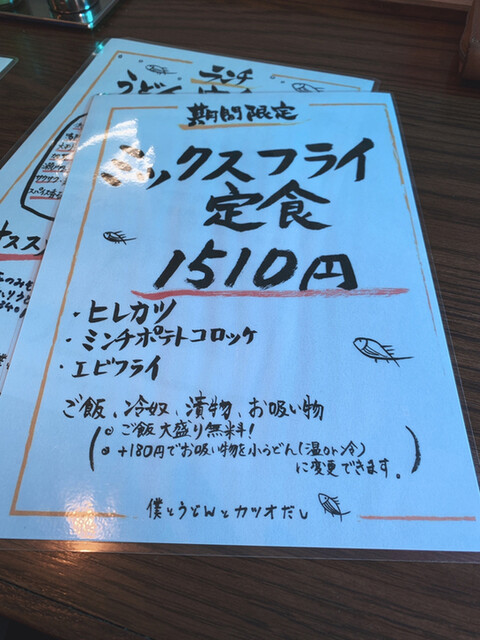 期間限定
ミックスフライ
定食
1510円
・ヒレカツ
・ミンチポテトコロッケ
・エビフライ
ご飯、冷奴、漬物、お吸い物
◎ ご飯大盛り無料!
◎ +180円でお吸い物を小うどん(温or冷)
に変更できます。
僕とうどんとカツオだし
ランチ
うどん